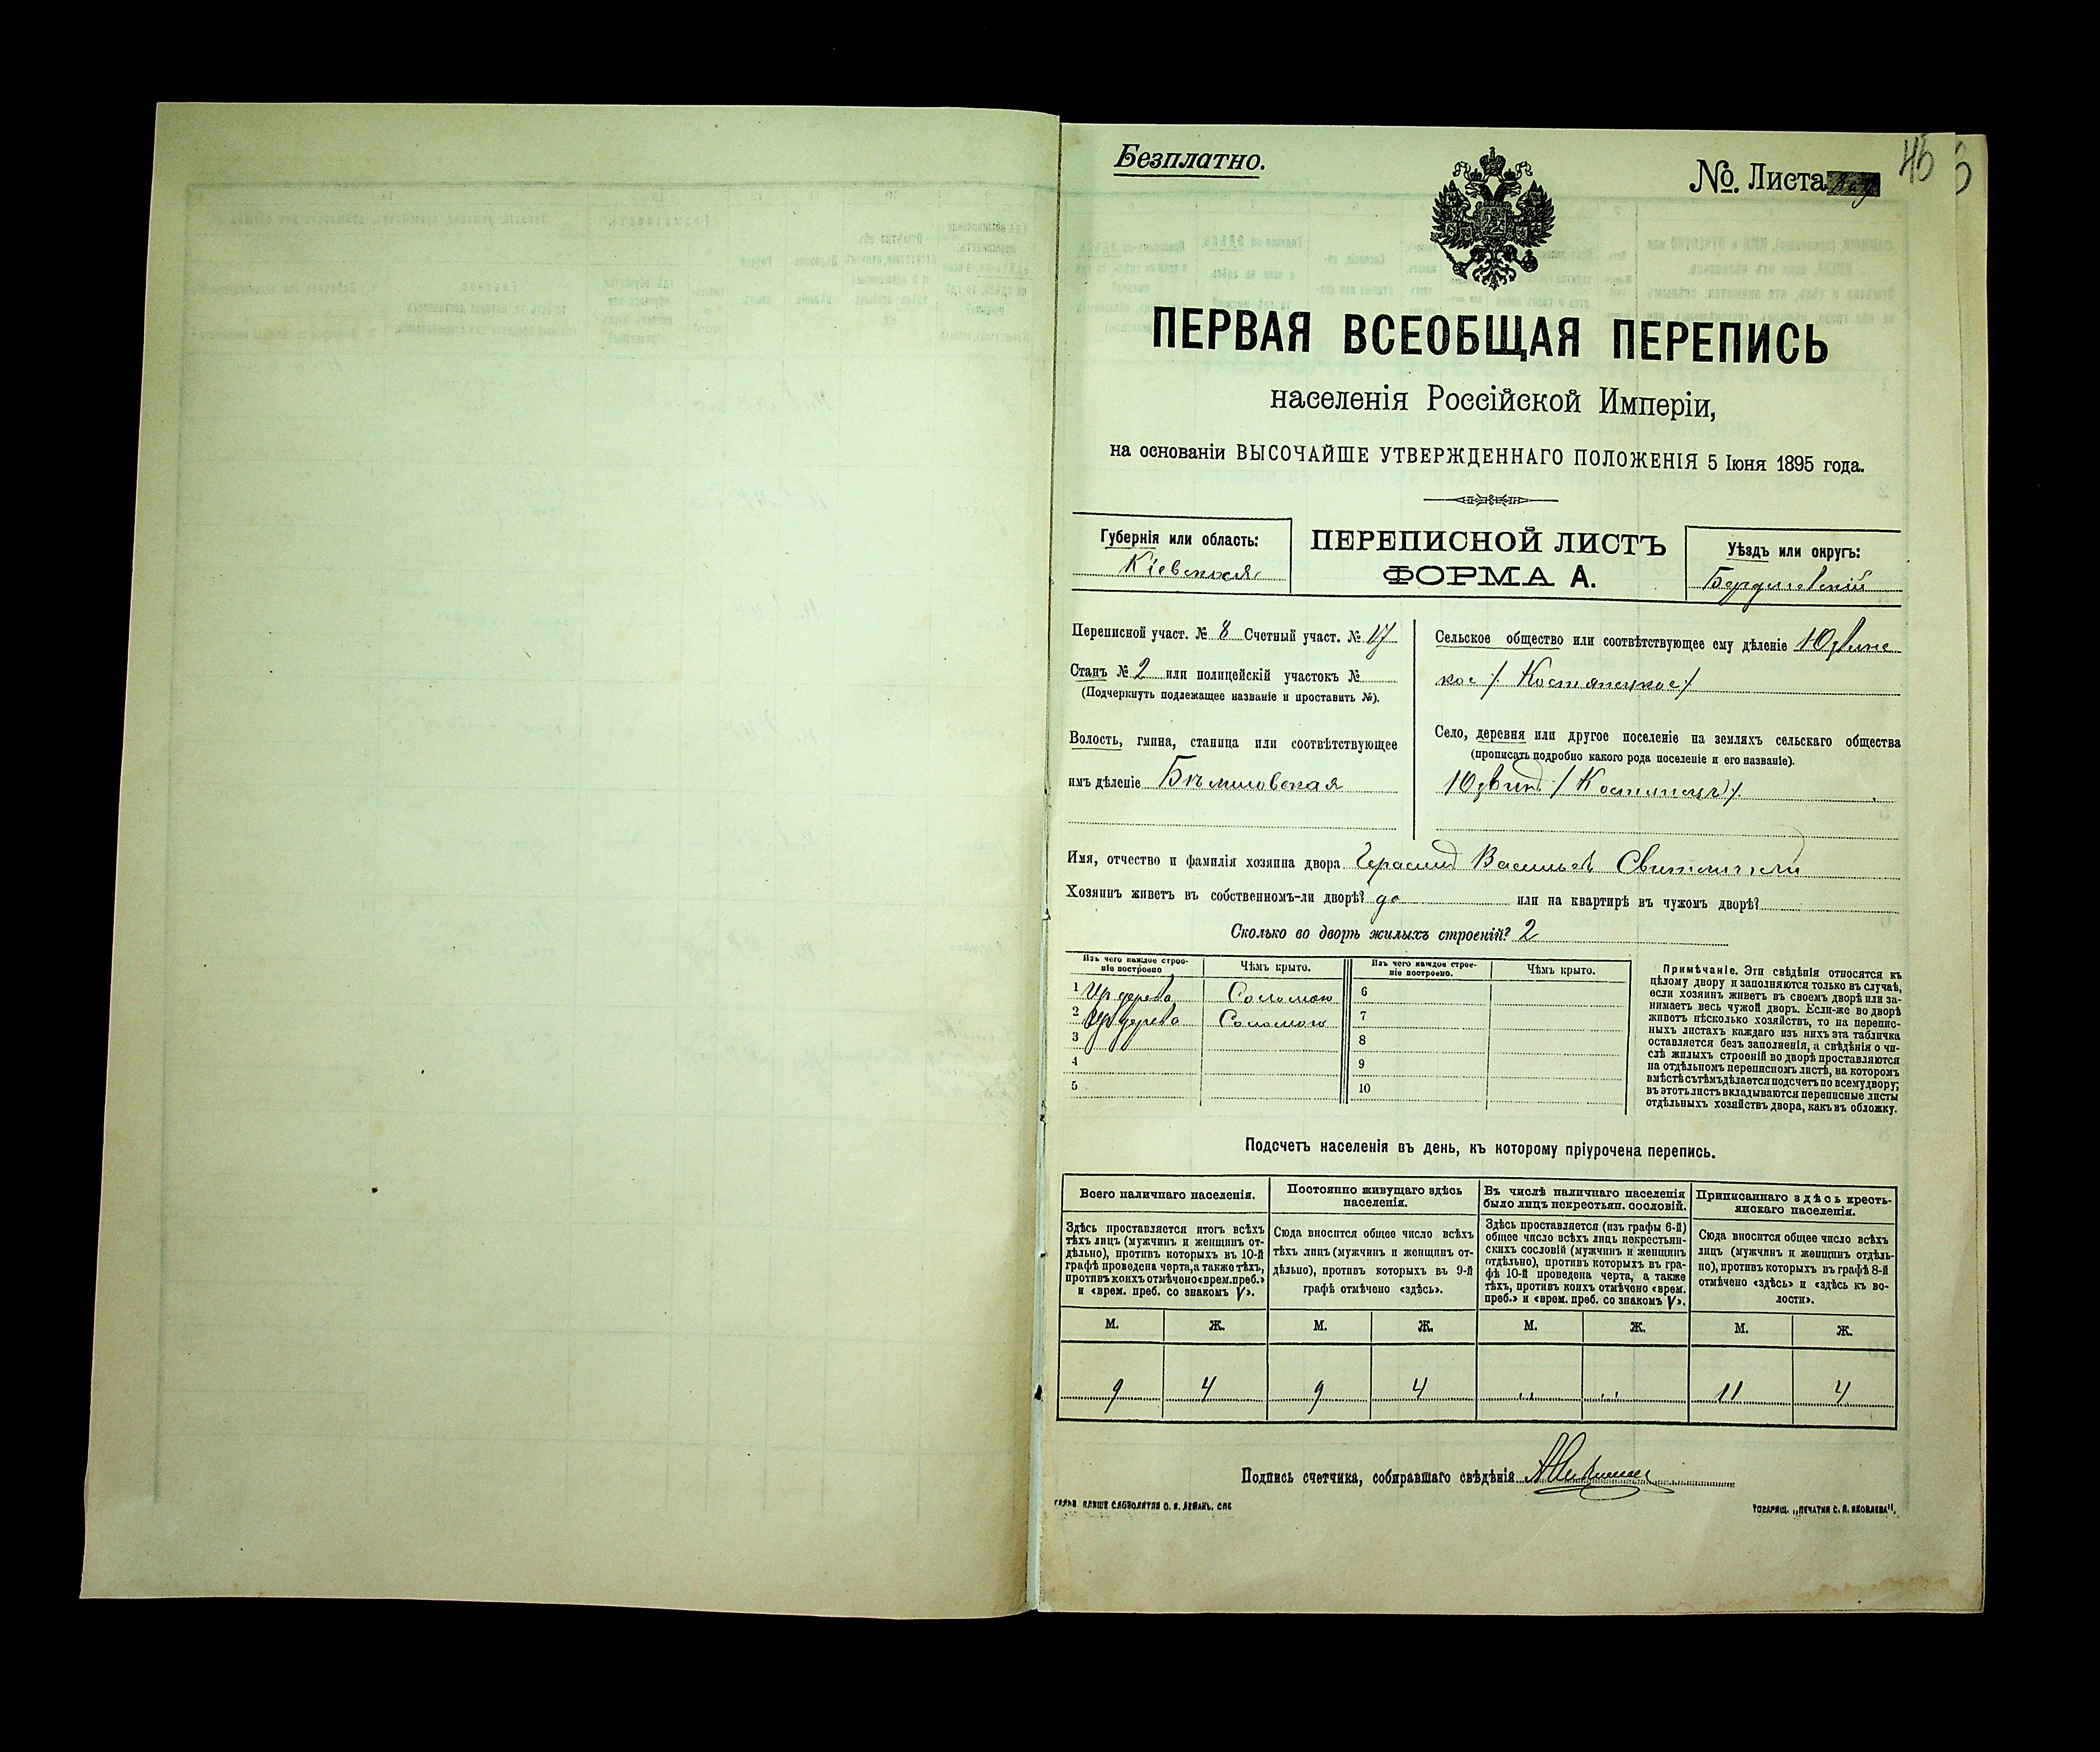 Безплатно.
№. Листа
45
ПЕРВАЯ ВСЕОБЩАЯ ПЕРЕПИСЬ
населенія Россійской Имперіи,
на основаніи ВЫСОЧАЙШЕ УТВЕРЖДЕННАГО ПОЛОЖЕНІЯ 5 Іюня 1895 года.
Губернія или область:
Кіевская
ПЕРЕПИСНОЙ ЛИСТЪ
ФОРМА А.
Уѣздъ или округъ:
Бердичевскій
Переписной участ. № 8 Счетный участ. № 17
Станъ № 2 или полицейскій участокъ №
(Подчеркнуть подлежащее названіе и проставить №).
Волость, гмина, станица или соотвѣтствующее
имъ дѣленіе Бѣлиловская
Сельское общество или соотвѣтствующее ему дѣленіе Юзвинс
кое /. Костянецкое /
Село, деревня или другое поселеніе на земляхъ сельскаго общества
(прописать подробно какого рода поселеніе и его названіе).
Юзвин / Костянецъ /.
Имя, отчество и фамилія хозяина двора Герасим Васильев
Хозяинъ живетъ въ собственномъ-ли дворѣ? да или на квартирѣ въ чужомъ дворѣ?
Сколько во дворѣ жилыхъ строеній? 2
Изъ чего каждое строе-
ніе построено
Чѣмъ крыто.
Изъ чего каждое строе-
ніе построено.
Чѣмъ крыто.
1 Из дерева Соломою 6
2 Из дерева Соломою 7
3 8
4 9
5 10
Примѣчаніе. Эти свѣдѣнія относятся къ
цѣлому двору и заполняются только въ случаѣ,
если хозяинъ живетъ въ своемъ дворѣ или за-
нимаетъ весь чужой дворъ. Если-же во дворѣ
живетъ нѣсколько хозяйствъ, то на перепис-
ныхъ листахъ каждаго изъ нихъ эта табличка
оставляется безъ заполненія, а свѣдѣнія о чи-
слѣ жилыхъ строеній во дворѣ проставляются
на отдѣльномъ переписномъ листѣ, на которомъ
вмѣстѣ съ тѣмъ дѣлается подсчетъ по всему двору;
въ этотъ листъ вкладываются переписные листы
отдѣльныхъ хозяйствъ двора, какъ въ обложку.
Подсчетъ населенія въ день, къ которому пріурочена перепись.
Всего наличнаго населенія.
Здѣсь проставляется итогъ всѣхъ
тѣхъ лицъ (мужчинъ и женщинъ от-
дѣльно), противъ которыхъ въ 10-й
графѣ проведена черта, а также тѣхъ,
противъ коихъ отмѣчено «врем. преб.»
и «врем. преб. со знакомъ V».
Постоянно живущаго здѣсь
населенія.
Сюда вносится общее число всѣхъ
тѣхъ лицъ (мужчинъ и женщинъ от-
дѣльно), противъ которыхъ въ 9-й
графѣ отмѣчено «здѣсь».
Въ числѣ наличнаго населенія
было лицъ некрестьян. сословій.
Здѣсь проставляется (изъ графы 6-й)
общее число всѣхъ лицъ некрестьян-
скихъ сословій (мужчинъ и женщинъ
отдѣльно), противъ которыхъ въ гра-
фѣ 10-й проведена черта, а также
тѣхъ, противъ коихъ отмѣчено «врем.
преб.» и «врем. преб. со знакомъ V».
Приписаннаго здѣсь кресть-
янскаго населенія.
Сюда вносится общее число всѣхъ
лицъ (мужчинъ и женщинъ отдѣль-
но), противъ которыхъ въ графѣ 8-й
отмѣчено «здѣсь» и «здѣсь въ во-
лости».
М. Ж. М. Ж. М. Ж. М. Ж.
9 4 9 4 „ „ 11 4
Подпись счетчика, собиравшаго свѣдѣнія
ТОВАРИЩ. „ПЕЧАТНЯ С. П. ЯКОВЛЕВА“,